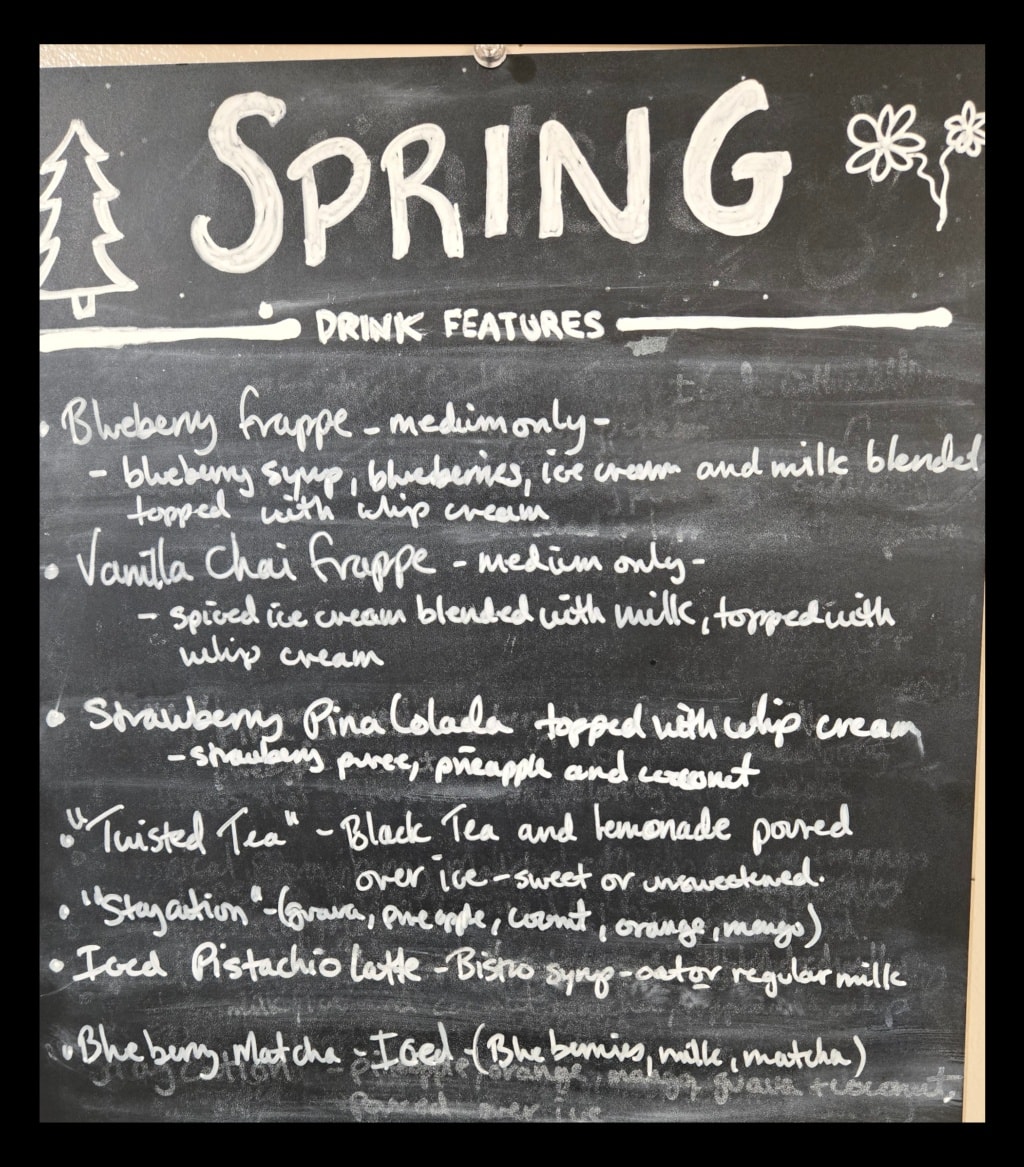 SPRING
DRINK FEATURES
• Blueberry frappe - medium only -
- blueberry syrup, blueberries, ice cream and milk blended
topped with whip cream
• Vanilla Chai frappe - medium only -
- spiced ice cream blended with milk, topped with
whip cream
• Strawberry Pina Colada topped with whip cream
- strawberry puree, pineapple and coconut
• "Twisted Tea" - Black Tea and lemonade poured
over ice - sweet or unsweetened.
• "Staycation" - (guava, pineapple, coconut, orange, mango)
• Iced Pistachio latte - Bistro syrup - oat or regular milk
• Blueberry Matcha - Iced - (Blueberries, milk, matcha)
Staycation - pineapple, orange, mango, guava + coconut,
Poured over ice